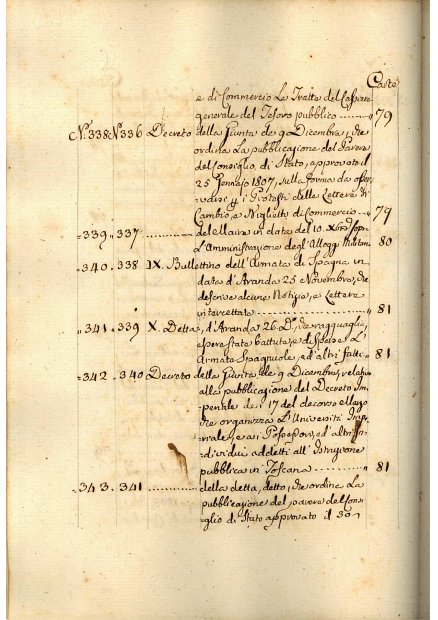 Carte
e di Commercio Le Tratte del Cassiere
generale del Tesoro pubblico 79
N.° 338. N.° 336 Decreto della Giunta de 9 Dicembre, che
ordina La pubblicazione del Parere
del Consiglio di Stato, approvato il
25 Gennajo 1807, sulla forma da osser-
varsi i Protesti delle Lettere di
Cambio, e Biglietti di Commercio 79
339 337 del Maire in data del 10. Xbre
L'Amministrazione degl'Alloggi Militari 80
340. 338 IX. Bullettino dell'Armata di Spagna in
data d'Aranda 25 Novembre, che
descrive alcune Notizie, e Lettere
intercettate 81
341. 339 X. Detto, d'Aranda 26 D.°, che ragguaglia,
essere state battute, e disperse L'
Armate Spagnuole, ed'altri fatti 81
342. 340 Decreto della Giunta de 9 Dicembre, relativo
alla pubblicazione del Decreto Im-
periale de' 17 del decorso
che organizza L'Università Impe-
riale, e a i Professori, ed'altri In-
dividui addetti all'Istruzione
pubblica in Toscana 81
343. 341 della detta, detto, che ordina La
pubblicazione del parere del Consi-
glio di Stato approvato il 30